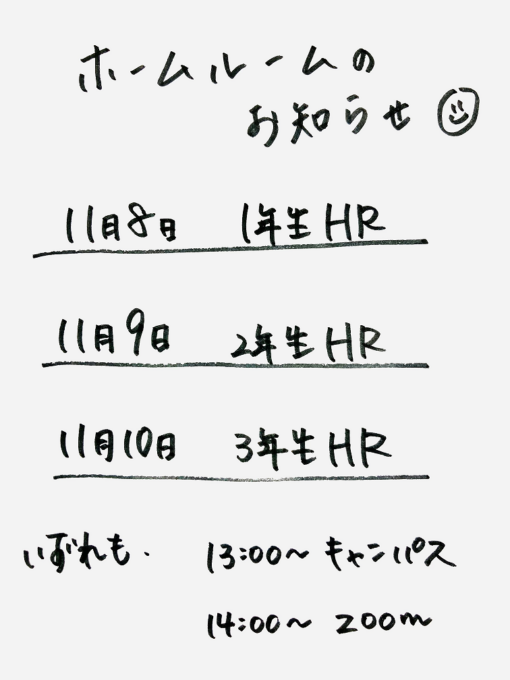 ホームルームの
お知らせ
11月8日 1年生HR
11月9日 2年生HR
11月10日 3年生HR
いずれも. 13:00～キャンパス
14:00～ zoom